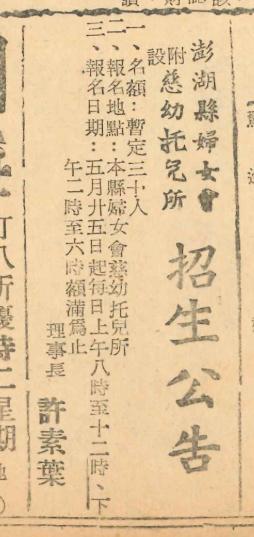 澎湖縣婦女會
附設慈幼托兒所
招生公告
一、名額：暫定三十人
二、報名地點：本縣婦女會慈幼托兒所
三、報名日期：五月廿五日起每日上午八時至十二時、下
午二時至六時額滿爲止
理事長 許素葉